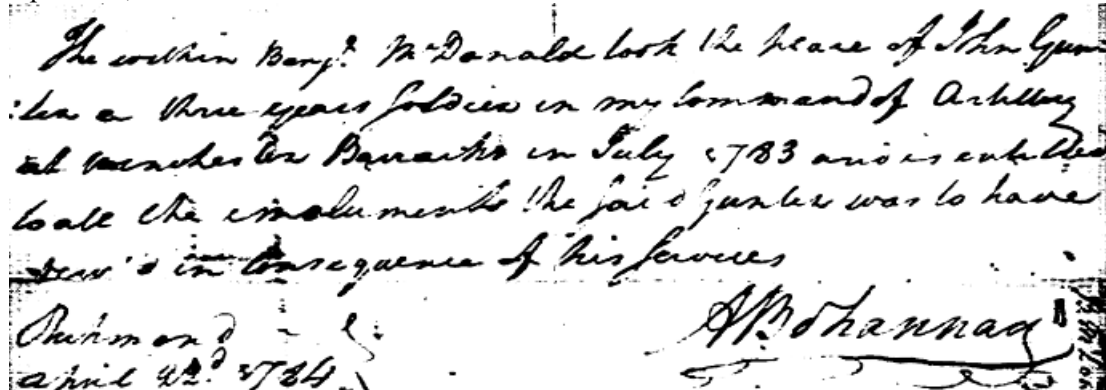 The within Benj.ª McDonald took the place of John Gun
:ter a three years Soldier in my Command of Artillery
at Winchester Barracks in July 1783 and is entitled
to all the emoluments the said Gunter was to have
in Consequence of his Services
Richmond
April 22.d 1784
A Bohannan